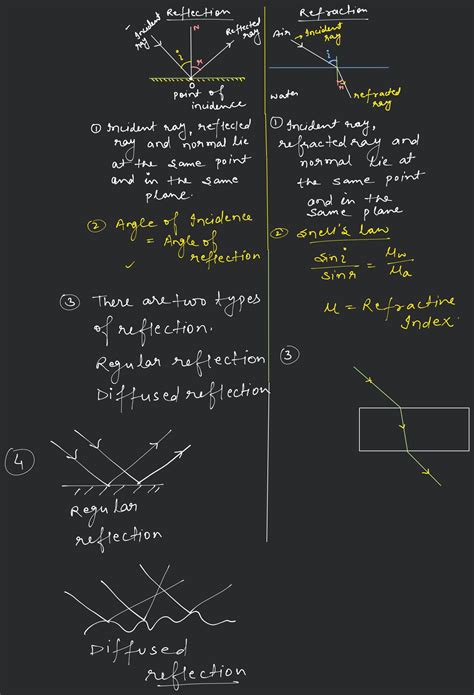 Reflection
Incident
ray
N
Reflected
ray
i
r
O
Point of
incidence
① Incident ray, reflected
ray and normal lie
at the same point
and in the same
plane.
② Angle of Incidence
= Angle of
reflection
③ There are two types
of reflection.
Regular reflection
Diffused reflection
④
Regular
reflection
Diffused
reflection
Refraction
Air
Incident
ray
i
r
water
refracted
ray
① Incident ray,
refracted ray and
normal lie at
the same point
and in the
same plane
② Snell's law
sin i / sin r = μw / μa
μ = Refractive
Index.
③